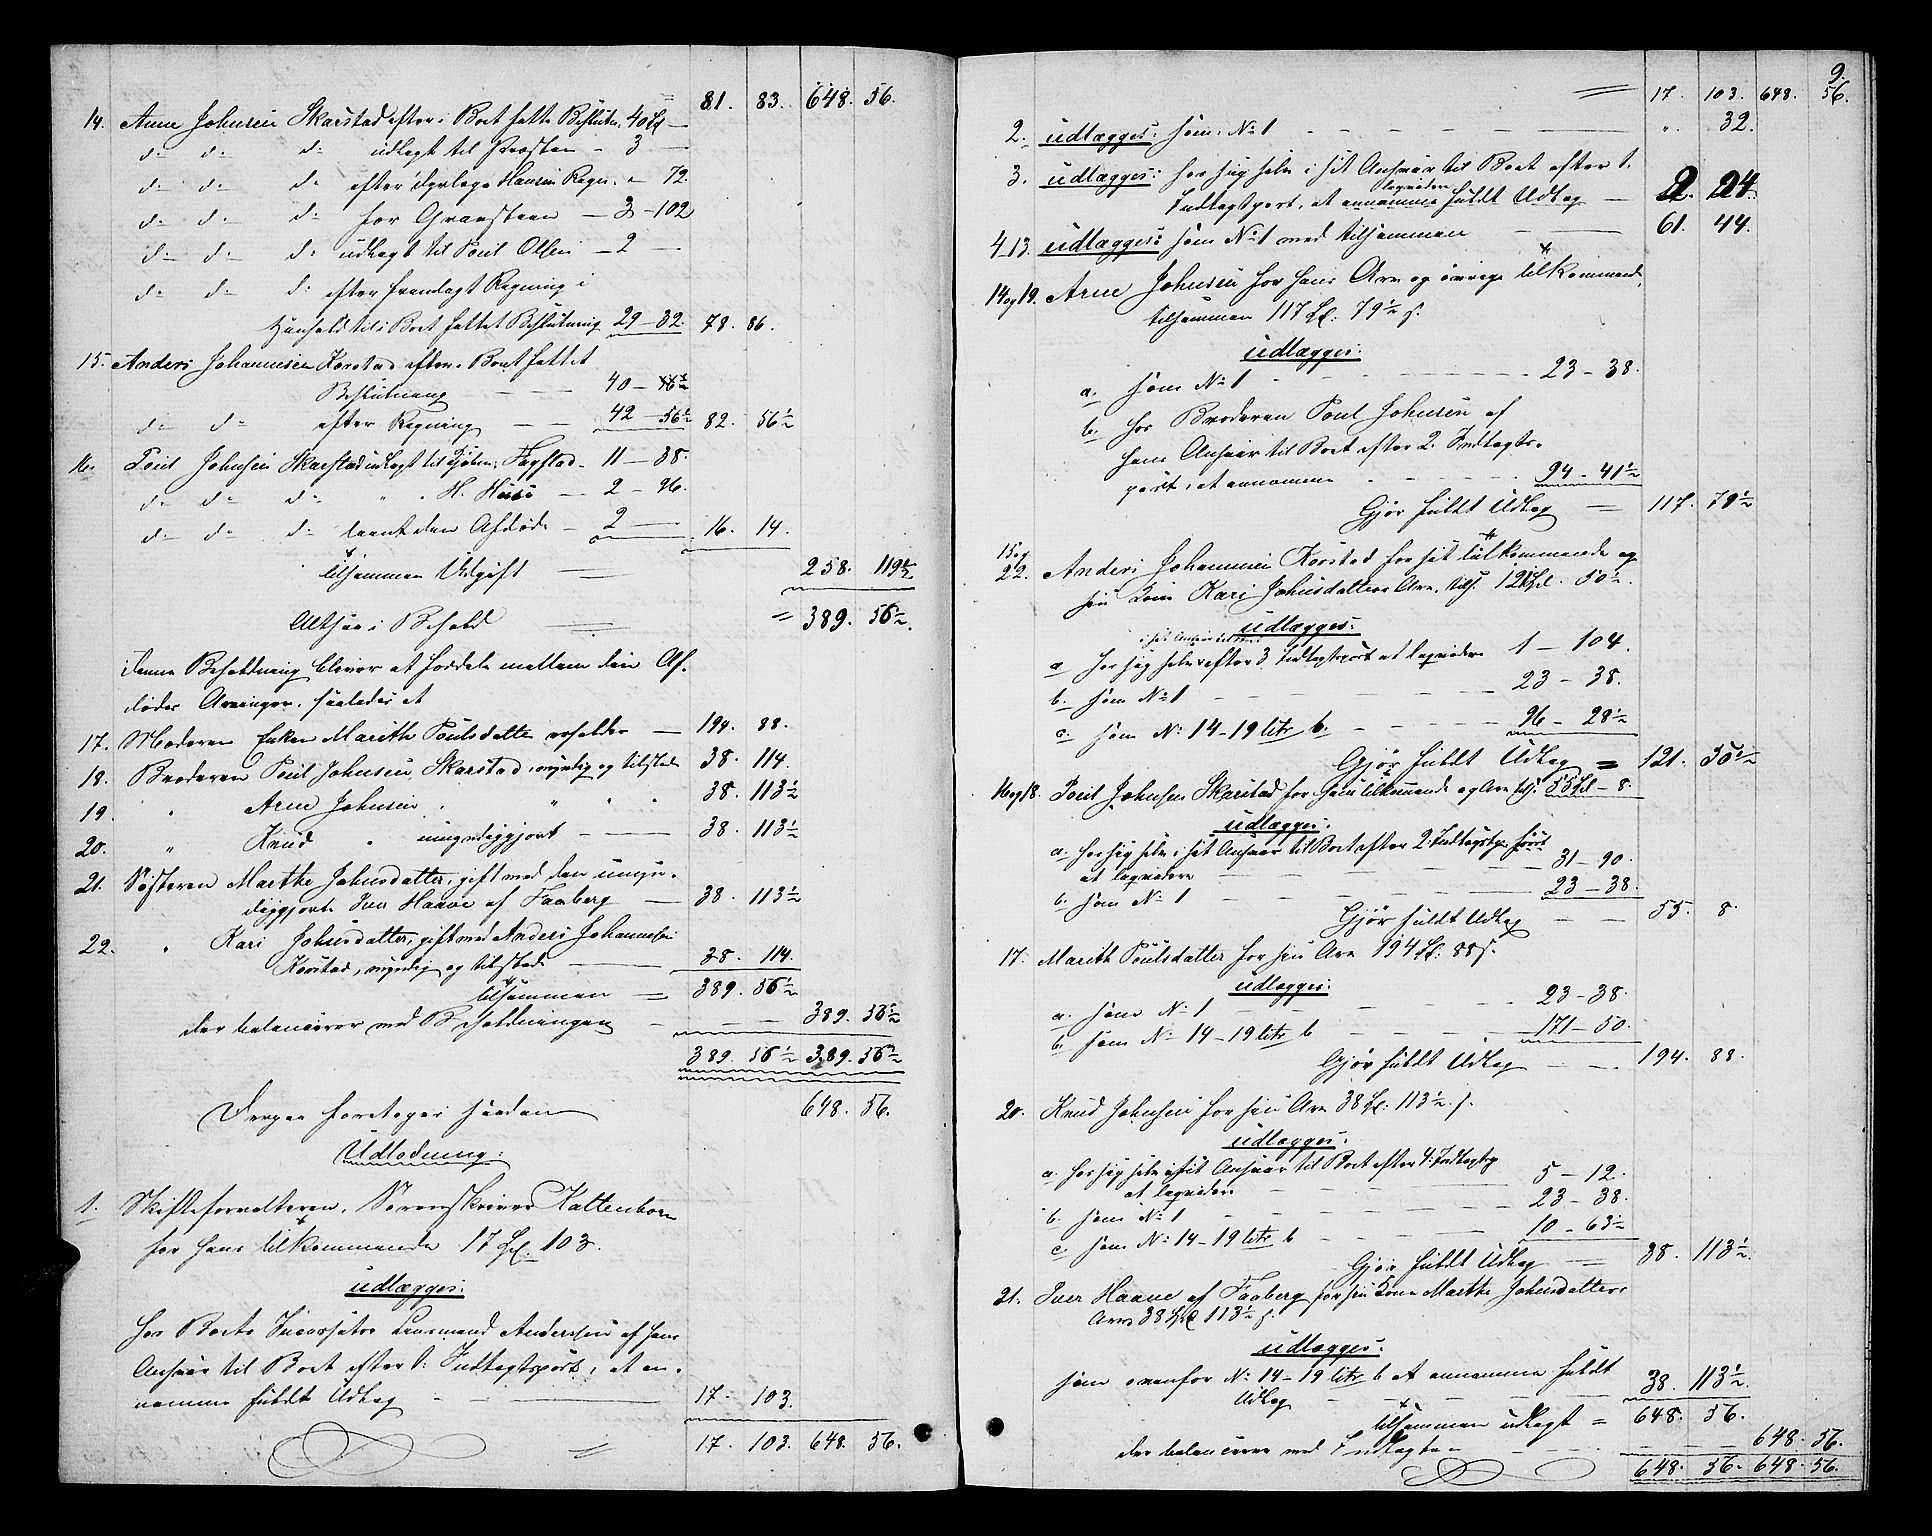 81. 83. 648. 56.
14. Arne Johnsen Skarstad efter i Boet fattet Beslutn. 40 Spd
do do do udlagt til Præsten - 3 -
do do do efter Dyrlæge Hansens Regn. - 72.
do do do for Gravsteen - 3 - 102
do do do udlagt til Poul Olsen - 2 -
do do do efter fremlagt Regning i
Henhold til i Boet fattet Beslutning 29 - 32. 78. 86.
15. Anders Johannesen Korstad efter i Boet fattet
Beslutning 40 -
do do efter Regning - 42 - 56½ 82. 56½
16. Poul Johnsen Skarstad udlagt til Kjøbm. Fagstad - 11 - 38.
do do do " " H. - 2 - 96.
do do do laant den Afdøde - 2 - 16. 14.
tilsammen Udgift 258. 119½
Altsaa i Behold = 389. 56½.
denne Beholdning bliver at fordele mellem den Af-
dødes Arvinger, saaledes at
17. Moderen Enken Marithe Poulsdatter erholder - 194. 88.
18. Broderen Poul Johnsen Skarstad, myndig og tilstede 38. 114.
19. " Arne Johnsen " " " 38. 113½
20. " Knud " umyndiggjort - 38. 113½
21. Søsteren Marthe Johnsdatter, gift med den umyn-
diggjorte Iver Haave af Faaberg - 38. 113½
22. " Kari Johnsdatter, gift med Anders Johannesen
Korstad, myndig og tilstede 38. 114.
tilsammen = 389. 56½
der balancerer med Beholdningen - 389. 56½
389. 56½ 389. 56½
Derpaa foretages saadan 648. 56.
Udlodning:
1. Skifteforvalteren, Sorenskriver Kaltenborn
for hans tilkommende 17 Spd. 103.
udlægges:
hos Boets Incassator Lensmand Anderssen af hans
Ansvar til Boet efter 1: Indtægtspost, at an-
namme fuldt Udlæg - 17. 103.
= 17. 103. 648. 56.
9.
= 17. 103. 648. 56.
2. udlægges: som No 1 - ". 32.
3. udlægges: hos sig selv i sit Ansvar til Boet efter 1.
Indtægtspost, at annamme liqvidere fuldt Udlæg - 2. 24.
4-13. udlægges som No 1 med tilsammen 61. 44.
14 og 19. Arne Johnsen for hans Arv og øvrige tilkommende,
tilsammen 117 Spd. 79½ s.
udlægges:
a. som No 1 - 23 - 38.
b. hos Broderen Poul Johnsen af
hans Ansvar til Boet efter 2. Indtægts-
post, at annamme - 94 - 41½
Gjør fuldt Udlæg - 117. 79½
15 og
22. Anders Johannesen Korstad for sit tilkommende og
sin Kone Kari Johnsdatters Arv, tils. 121 Spd. 50½.
udlægges:
i sit Ansvar til Boet
a hos sig selv efter 3. Indtægtspost at liqvidere 1 - 104.
b. som No 1 - 23 - 38.
c. som No 14-19 litr b. - 96 - 28½
Gjør fuldt Udlæg = 121. 50½
16 og 18. Poul Johnsen Skarstad for hans tilkommende og Arv tils. 55 Spd - 8.
udlægges:
a. hos sig selv i sit Ansvar til Boet efter 2: Indtægtsp. først
at liqvidere 31 - 90.
b. som No 1 - 23 - 38.
Gjør fuldt Udlæg - 55. 8.
17. Marith Poulsdatter for sin Arv 194 Spd. 88 s.
udlægges:
a. som No 1 - 23 - 38.
b. som No 14-19 litr b - 171 - 50.
Gjør fuldt Udlæg - 194. 88.
20. Knud Johnsen for sin Arv 38 Spd. 113½ s.
udlægges:
a. hos sig selv i sit Ansvar til Boet efter 4: Indtægtsp
at liqvidere 5 - 12.
b. som No 1 - 23 - 38.
c. som No 14-19 litr b - 10 - 63½
Gjør fuldt Udlæg = 38. 113½.
21. Iver Haave af Faaberg for sin Kone Marthe Johnsdatters
Arv 38 Spd 113½ s.
udlægges:
som ovenfor No 14-19 litr b at annamme fuldt
Udlæg - 38. 113½
tilsammen udlagt = 648. 56.
der balancerer med Indtægten - 648. 56.
648. 56. 648. 56.